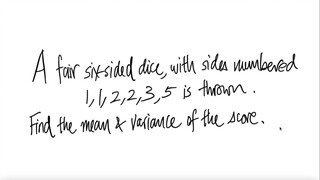 A fair six-sided dice, with sides numbered
1, 1, 2, 2, 3, 5 is thrown.
Find the mean & variance of the score.